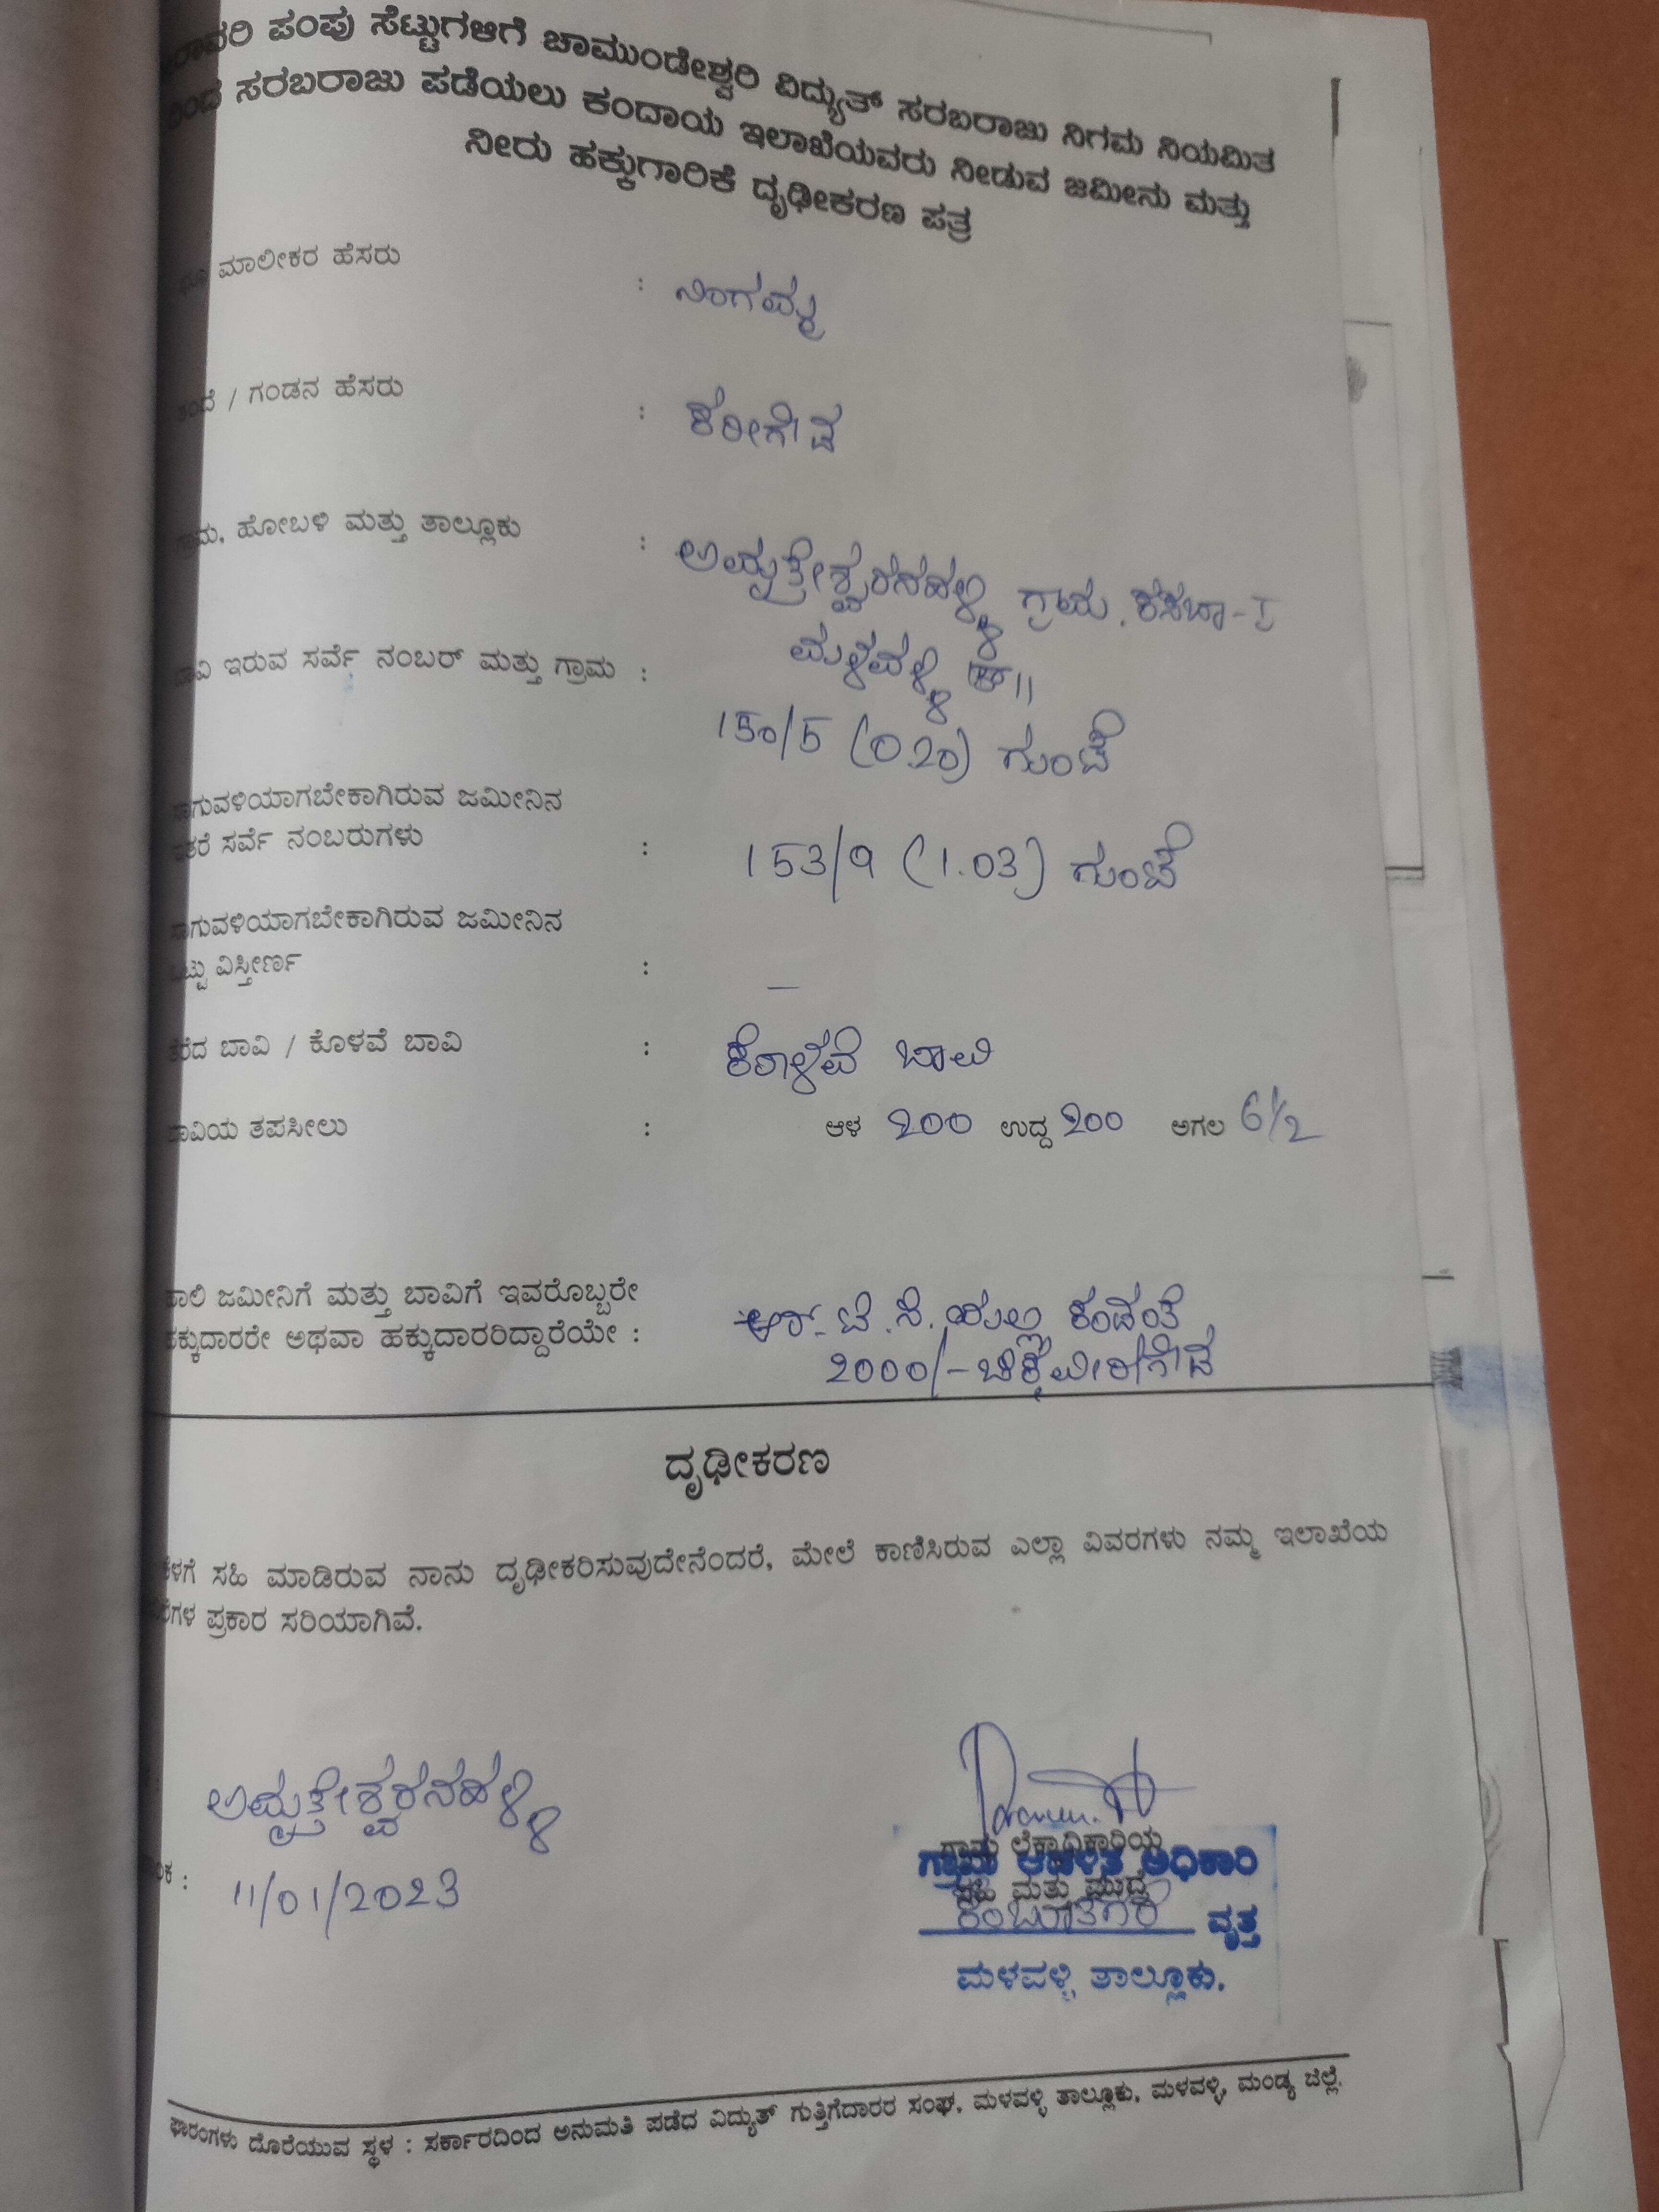 ಪಂಪು ಸೆಟ್ಟುಗಳಿಗೆ ಚಾಮುಂಡೇಶ್ವರಿ ವಿದ್ಯುತ್ ಸರಬರಾಜು ನಿಗಮ ನಿಯಮಿತ
ಸರಬರಾಜು ಪಡೆಯಲು ಕಂದಾಯ ಇಲಾಖೆಯವರು ನೀಡುವ ಜಮೀನು ಮತ್ತು
ನೀರು ಹಕ್ಕುಗಾರಿಕೆ ದೃಢೀಕರಣ ಪತ್ರ
ಮಾಲೀಕರ ಹೆಸರು : ನಿಂಗಮ್ಮ
/ ಗಂಡನ ಹೆಸರು : ಕರೀಗೌಡ
ಹೋಬಳಿ ಮತ್ತು ತಾಲ್ಲೂಕು : ಅಮೃತೇಶ್ವರನಹಳ್ಳಿ ಗ್ರಾಮ. ಕಸಬಾ-I
ಮಳವಳ್ಳಿ ತಾ||
ಇರುವ ಸರ್ವೆ ನಂಬರ್ ಮತ್ತು ಗ್ರಾಮ :
150/5 (0.20) ಗುಂಟೆ
ಸಾಗುವಳಿಯಾಗಬೇಕಾಗಿರುವ ಜಮೀನಿನ
ಇತರೆ ಸರ್ವೆ ನಂಬರುಗಳು : 153/9 (1.03) ಗುಂಟೆ
ಸಾಗುವಳಿಯಾಗಬೇಕಾಗಿರುವ ಜಮೀನಿನ
ಒಟ್ಟು ವಿಸ್ತೀರ್ಣ : —
ತೆರೆದ ಬಾವಿ / ಕೊಳವೆ ಬಾವಿ : ಕೊಳವೆ ಬಾವಿ
ಬಾವಿಯ ತಪಸೀಲು : ಆಳ 200 ಉದ್ದ 200 ಅಗಲ 6½
ಹಾಲಿ ಜಮೀನಿಗೆ ಮತ್ತು ಬಾವಿಗೆ ಇವರೊಬ್ಬರೇ
ಹಕ್ಕುದಾರರೇ ಅಥವಾ ಹಕ್ಕುದಾರರಿದ್ದಾರೆಯೇ : ಆರ್.ಟಿ.ಸಿ. ಯಲ್ಲಿ ಕಂಡಂತೆ
ದೃಢೀಕರಣ
ಕೆಳಗೆ ಸಹಿ ಮಾಡಿರುವ ನಾನು ದೃಢೀಕರಿಸುವುದೇನೆಂದರೆ, ಮೇಲೆ ಕಾಣಿಸಿರುವ ಎಲ್ಲಾ ವಿವರಗಳು ನಮ್ಮ ಇಲಾಖೆಯ
ಪ್ರಕಾರ ಸರಿಯಾಗಿವೆ.
ಅಮೃತೇಶ್ವರನಹಳ್ಳಿ
: 11/01/2023
ಗ್ರಾಮ ಲೆಕ್ಕಾಧಿಕಾರಿಯ
ಗ್ರಾಮ ಆಡಳಿತ ಅಧಿಕಾರಿ
ಸಹಿ ಮತ್ತು ಮುದ್ರೆ
ವೃತ್ತ
ಮಳವಳ್ಳಿ ತಾಲ್ಲೂಕು.
ಫಾರಂಗಳು ದೊರೆಯುವ ಸ್ಥಳ : ಸರ್ಕಾರದಿಂದ ಅನುಮತಿ ಪಡೆದ ವಿದ್ಯುತ್ ಗುತ್ತಿಗೆದಾರರ ಸಂಘ, ಮಳವಳ್ಳಿ ತಾಲ್ಲೂಕು, ಮಳವಳ್ಳಿ, ಮಂಡ್ಯ ಜಿಲ್ಲೆ.